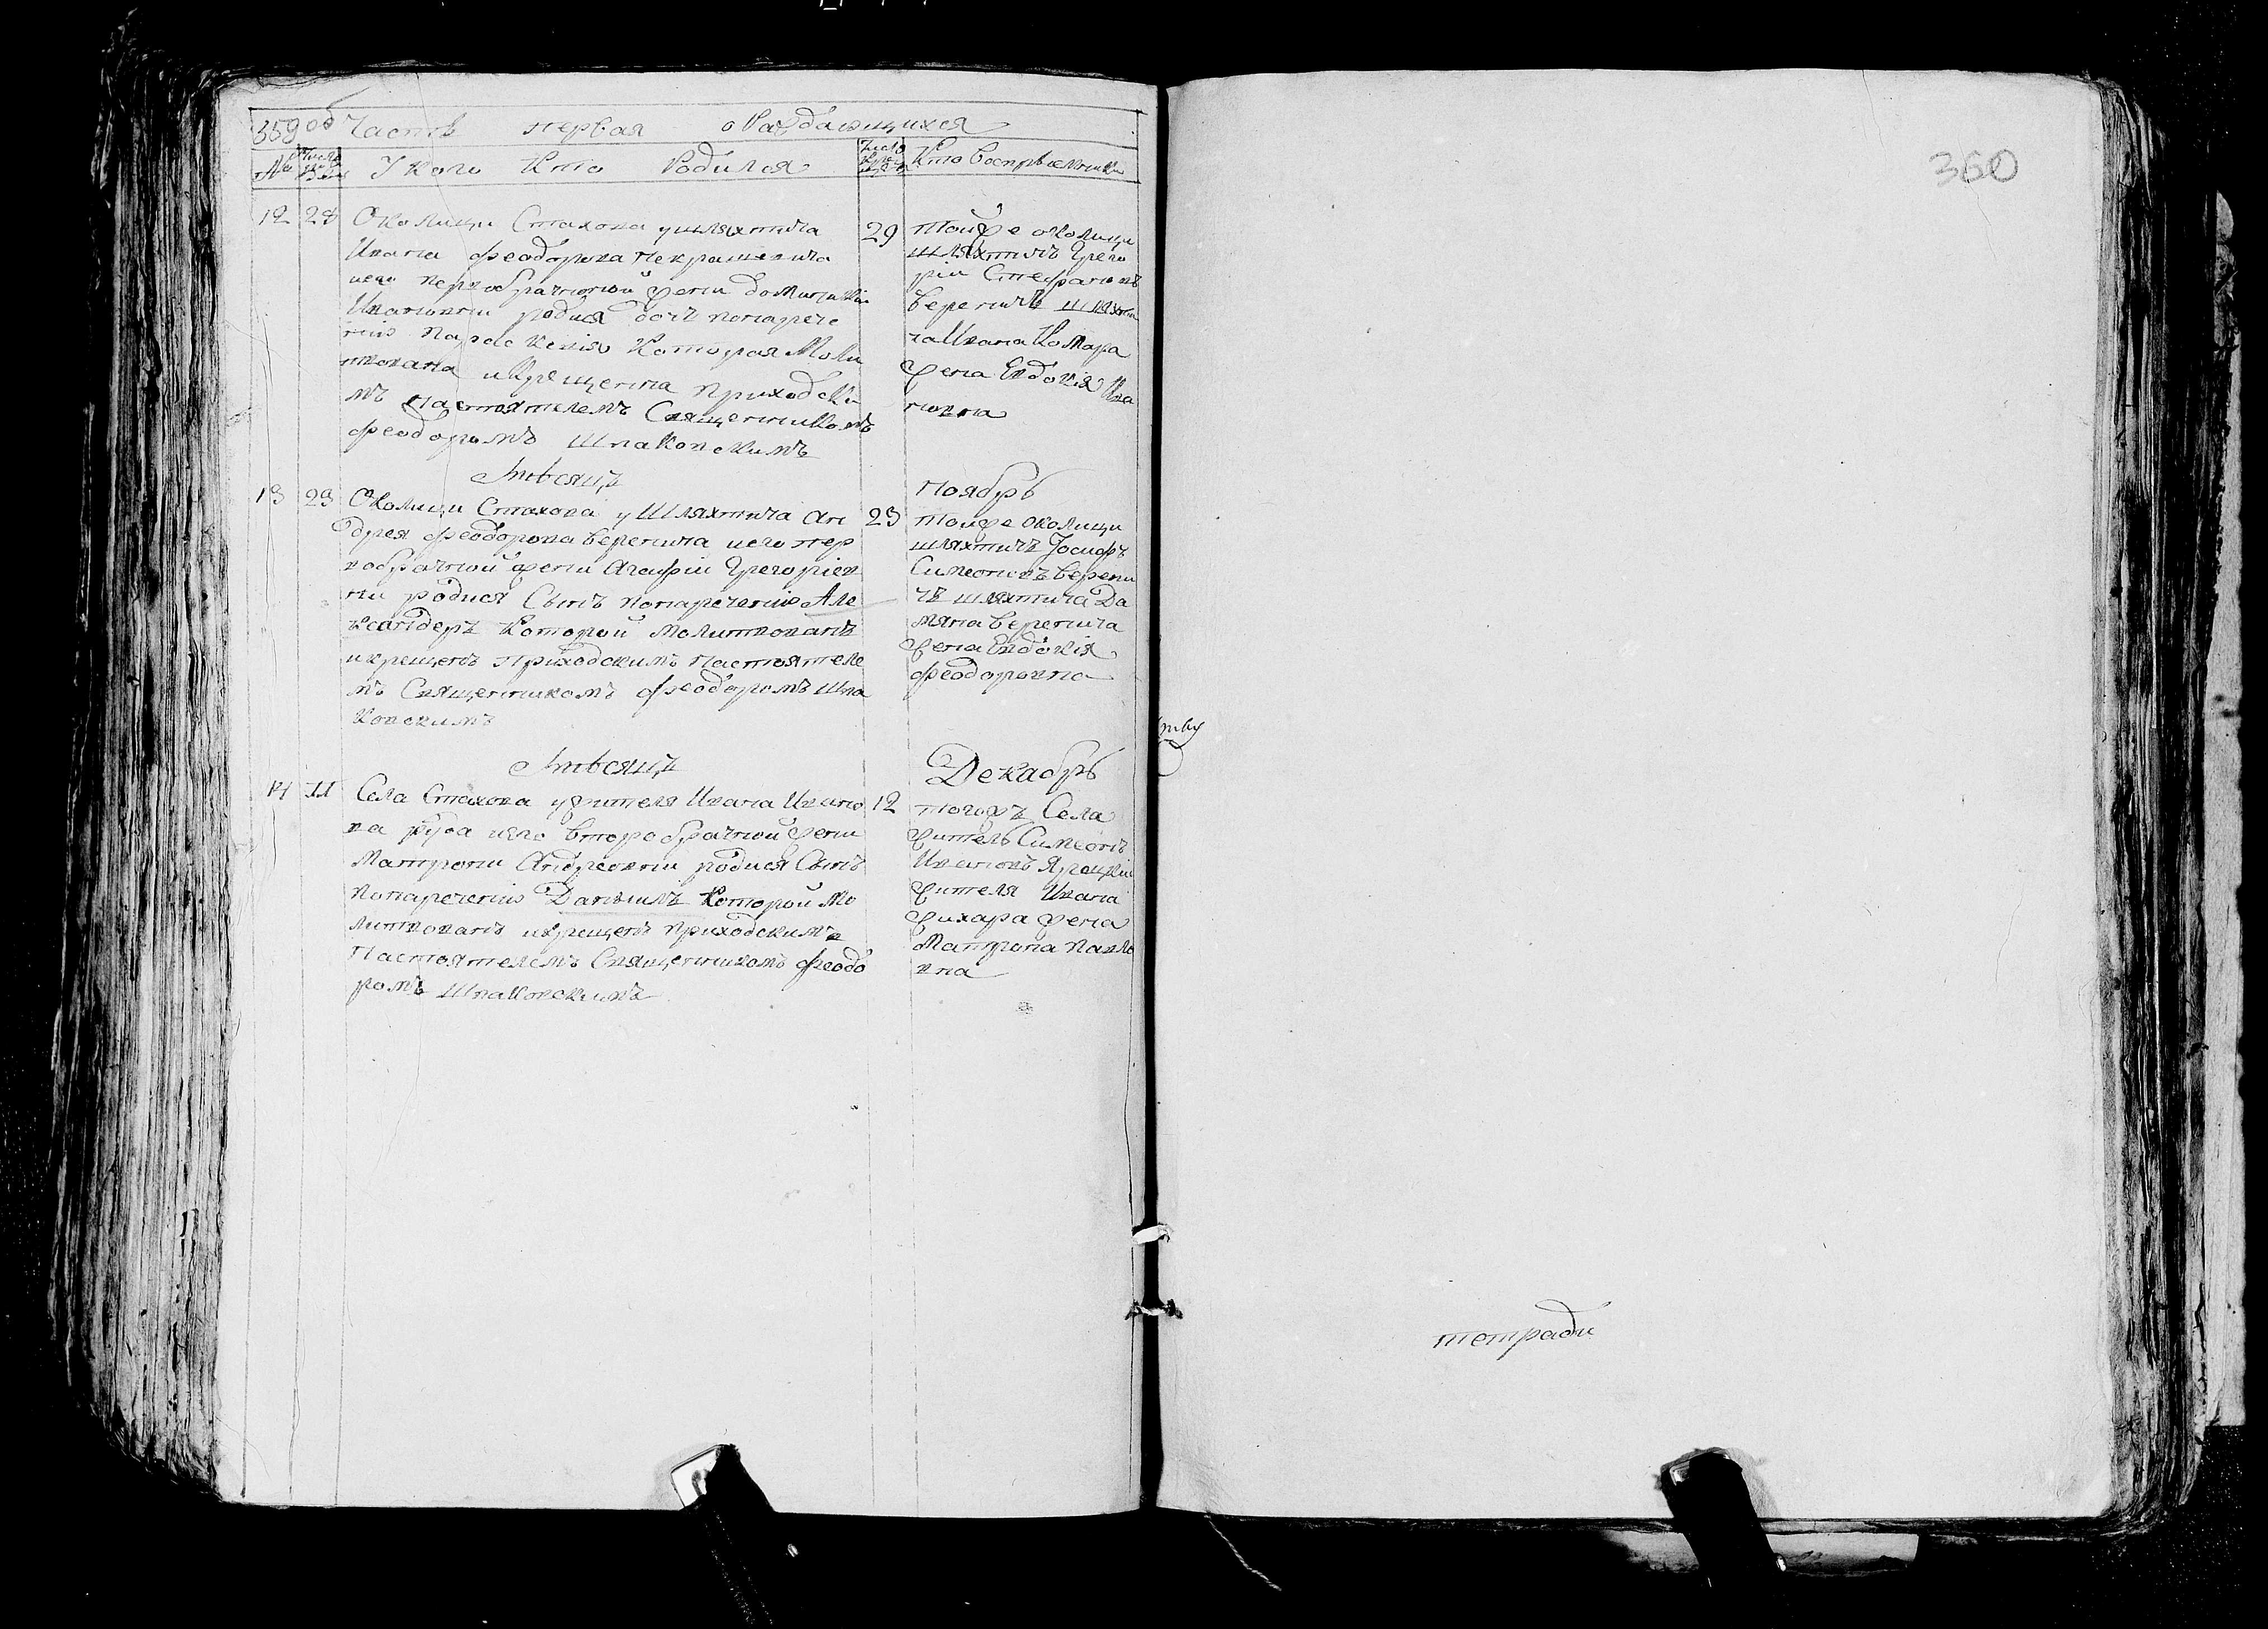 359 об Часть первая о Раждающихся
№ Число У кого Кто Родился Число Кто Воспрѣемники
12 28 Околици Стахова у шляхтича
Ивана Феодорова Некрашевича
иего первобрачной жени Доминикіи
Ивановни родися дочъ понарече
нію Параскевія Которая Моли
твована икрещенна приходски
мъ Настоятелемъ Священникомъ
Феодоромъ Шпаковскимъ
29 Тойже околици
шляхтичъ Грего
рій Стефановъ
Вереничъ шляхти
ча Ивана Комара
жена Евдокія Ива
новна
Мѣсяцъ Ноябрь
13 23 Околици Стахова у Шляхтича Ан
дрея Феодорова Веренича иего пер
вобрачной жени Агафіи Григоріев
ни родися Сынъ понареченію Але
ксандеръ Которой молитвованъ
икрещенъ приходскимъ Настоятеле
мъ Священникомъ Феодоромъ Шпа
ковскимъ
23 Тоиже околици
шляхтичъ Іосифъ
Симеоновъ Верени
чъ шляхтича Да
мяна Веренича
жена Евдокія
Феодоровна
Мѣсяцъ Декабрь
14 11 Села Стахова ужителя Ивана Ивано
ва иего второбрачной жени
Матрони Андреовни родися Сынъ
понареченію Даніилъ Которой Мо
литвованъ икрещенъ приходскимъ
Настоятелемъ Священникомъ Феодо
ромъ Шпаковскимъ
12 тогожъ Села
житель Симеонъ
Ивановъ Яроцкій
жителя Ивана
жена
Матрона Павло
вна
360
тетради